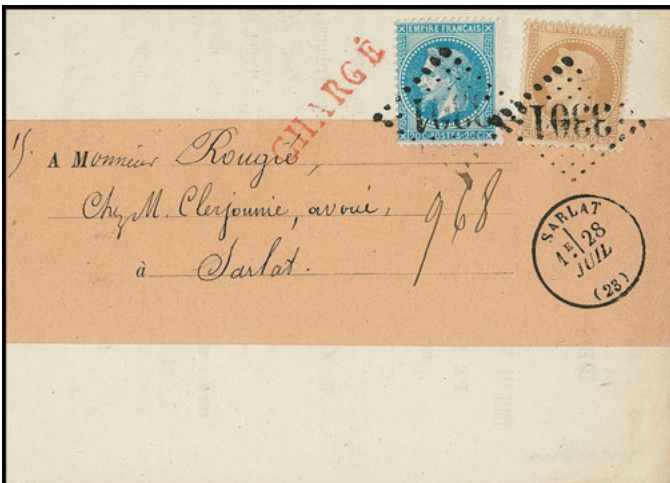 CHARGÉ
EMPIRE FRANÇAIS
20 C POSTES 20 C
EMPIRE FRANÇAIS
3301
1) A Monsieur Rougié,
Chez M. Clerjounie, avoué,
à Sarlat.
968
SARLAT
1E 28
JUIL
(23)